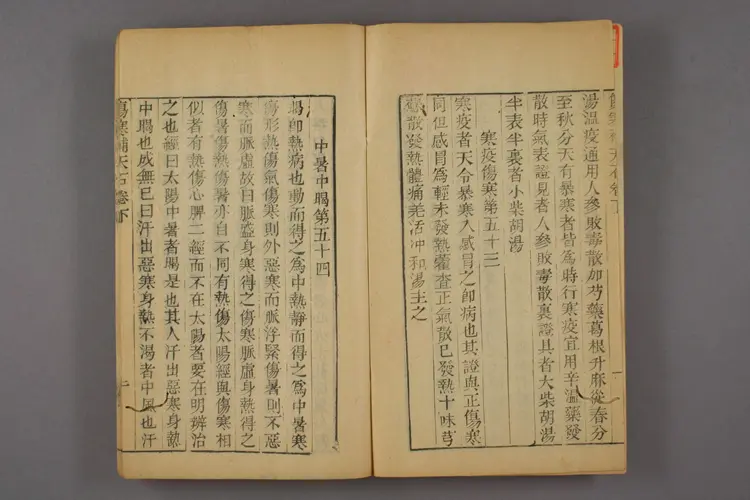 湯溫疫通用人參敗毒散加芍藥葛根升麻從春分
至秋分天有暴寒者皆爲時行寒疫宜用辛溫藥發
散時氣表證見者人參敗毒散裏證具者大柴胡湯
半表半裏者小柴胡湯
寒疫傷寒第五十三
寒疫者天令暴寒人感冒之卽病也其證與正傷寒
同但感冒爲輕未發熱藿香正氣散已發熱十味芎
蘇散發熱體痛羌活冲和湯主之
中暑中暍第五十四
暍卽熱病也動而得之爲中熱靜而得之爲中暑寒
傷形熱傷氣傷寒則外惡寒而脈浮緊傷暑則不惡
寒而脈虛故曰脈盛身寒得之傷寒脈虛身熱得之
傷暑傷熱傷暑亦自不同有熱傷太陽經與傷寒相
似者有熱傷心脾二經而不在太陽者要在明辨治
之也經曰太陽中暑者暍是也其人汗出惡寒身熱
中暍也成無已曰汗出惡寒身熱不渴者中風也汗
傷寒補天石卷下